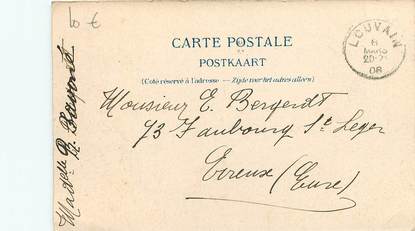 10 €
CARTE POSTALE
POSTKAART
(Côté réservé à l'adresse — Zijde voor het adres alleen)
LOUVAIN
6
MARS
08
Monsieur E. Bergerdt
73 Faubourg St Leger
Evreux (Eure)
Madelle